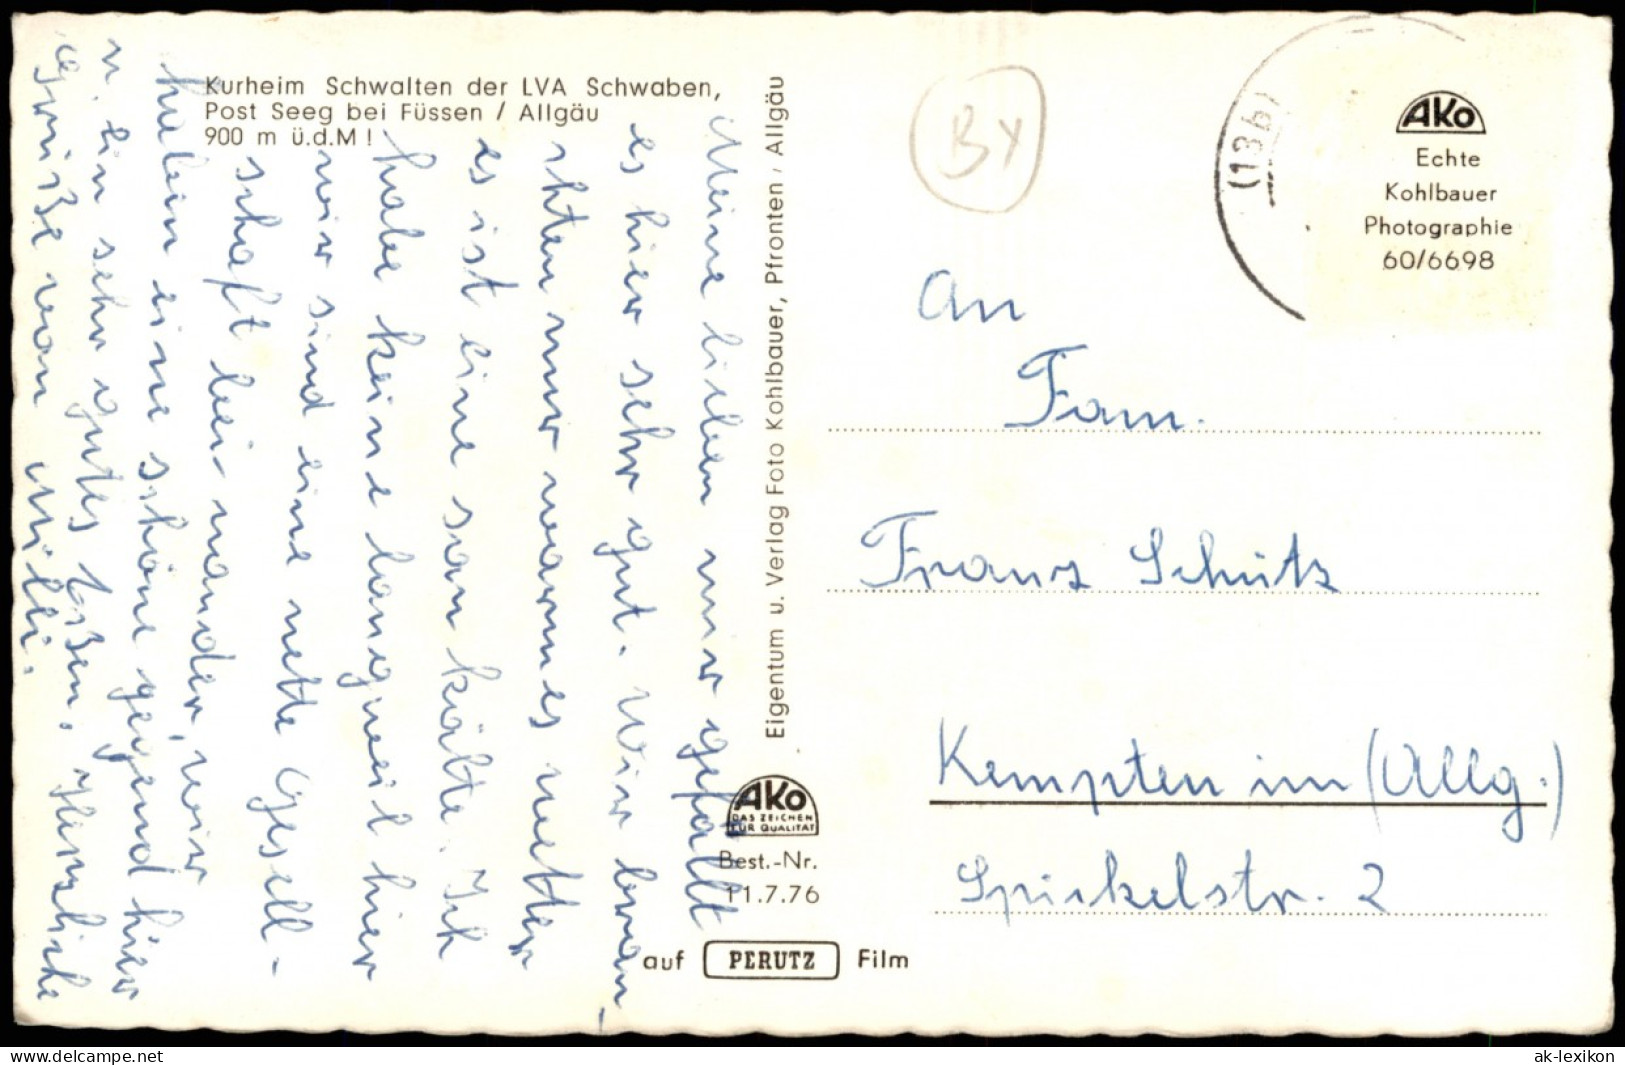 Kurheim Schwalten der LVA Schwaben,
Post Seeg bei Füssen / Allgäu
900 m ü.d.M!
Meine lieben mir gefällt
es hier sehr gut. Wir brau,
chten nur warmes wetter
es ist eine sau kälte. Ich
habe keine langweil hier
wir sind eine nette Gesell-
schaft bei-nander, wir
haben eine schöne gegend hier
n ein sehr gutes Eßen. Herzliche
Grüße von Milli.
Eigentum u. Verlag Foto Kohlbauer, Pfronten / Allgäu
AKO
DAS ZEICHEN
FÜR QUALITÄT
Best.-Nr.
11.7.76
auf PERUTZ Film
BY
(13b)
AKO
Echte
Kohlbauer
Photographie
60/6698
An
Fam.
Franz Schütz
Kempten im (Allg.)
Spickelstr. 2
© www.delcampe.net
ak-lexikon